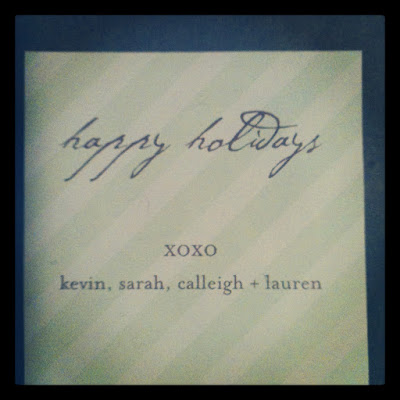 happy holidays
xoxo
kevin, sarah, calleigh + lauren